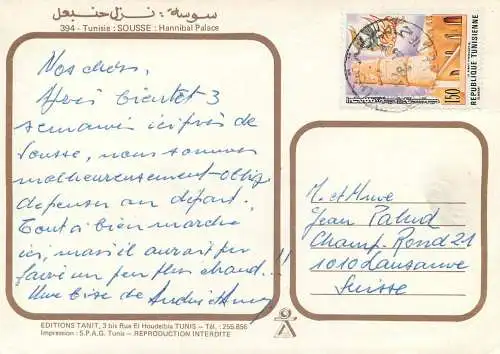 سوسة : نزل حنبعل
394 - Tunisie : SOUSSE : Hannibal Palace
Nos chers,
Après bientôt 3
semaines ici près de
Sousse, nous sommes
malheureusement oblig
de penser au départ.
Tout a bien marché
ici, mais il aurait pu
faire un peu plus chaud...!!
Une bise de
REPUBLIQUE TUNISIENNE
150
M. et Mme
Jean Palud
Champ-Rond 21
1010 Lausanne
Suisse
EDITIONS TANIT, 3 bis Rue El Houdeibia TUNIS - Tél. : 255.856
Impression : S.P.A.G. Tunis - REPRODUCTION INTERDITE